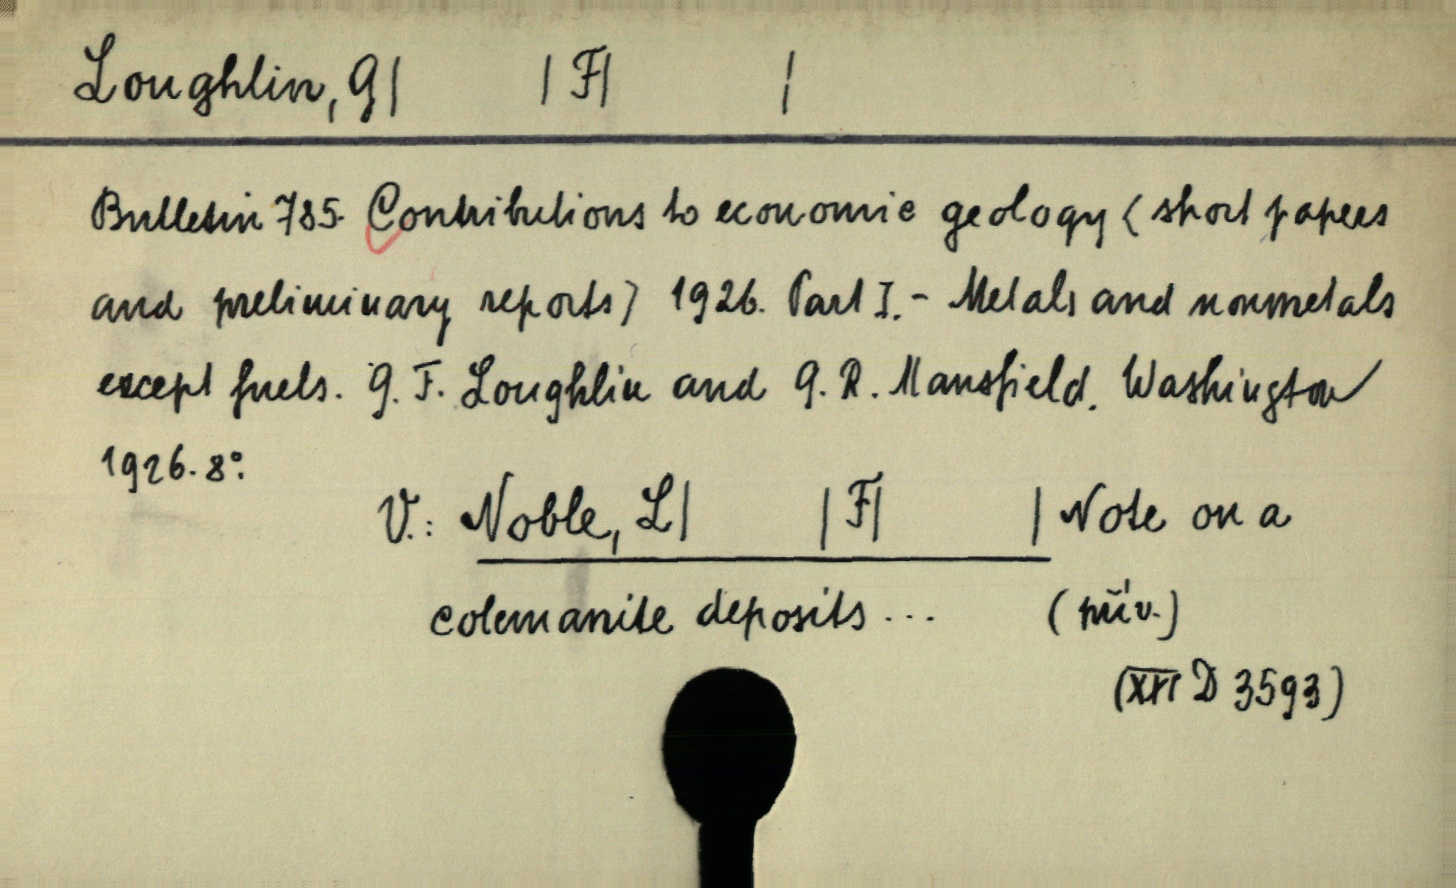 Loughlin, G| |F| |
Bulletin 785. Contributions to economic geology (short papers
and preliminary reports) 1926. Part I. - Metals and nonmetals
except fuels. G. F. Loughlin and G. R. Mansfield. Washington
1926. 8°.
V.: Noble, L| |F| | Note on a
colemanite deposits... (přív.)
(XVI D 3593)